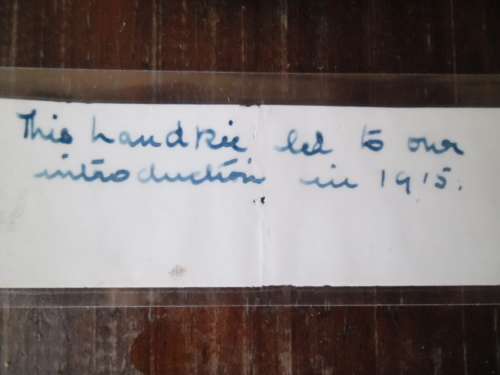 This handkie led to our
introduction in 1915.